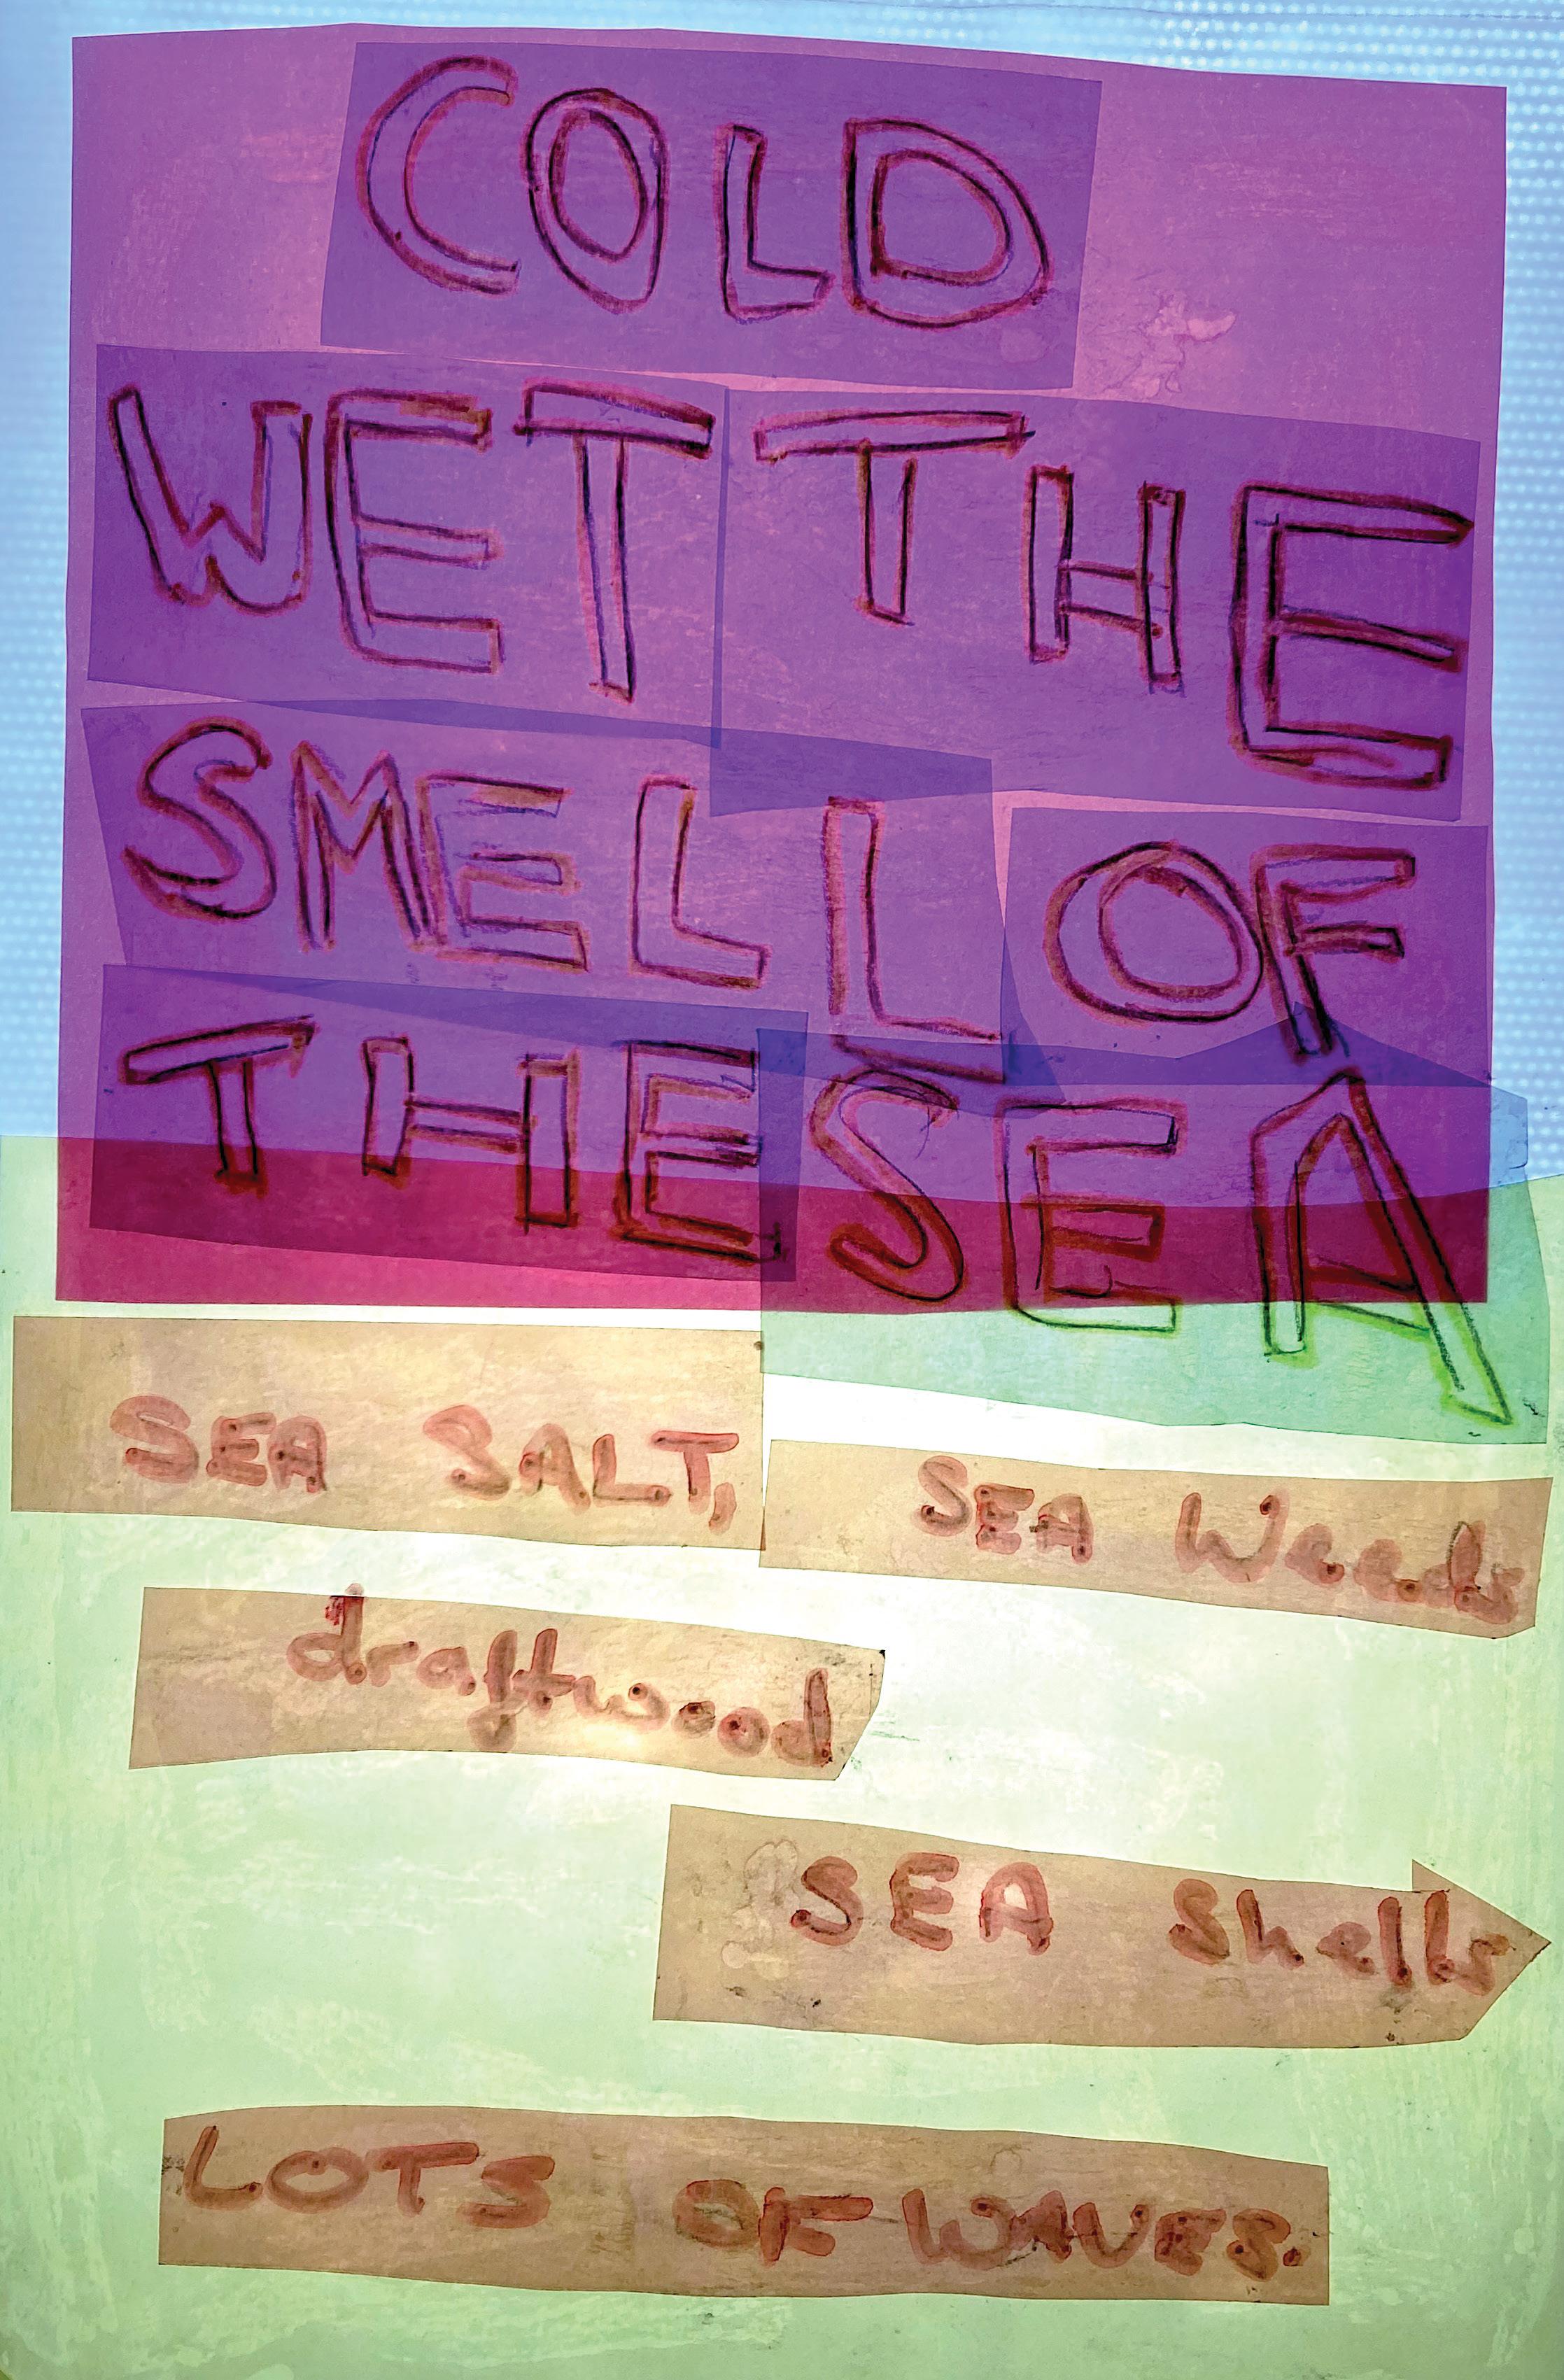 COLD
WET THE
SMELL OF
THE SEA
SEA SALT, SEA Weeds
draftwood
SEA Shells
LOTS OF WAVES.